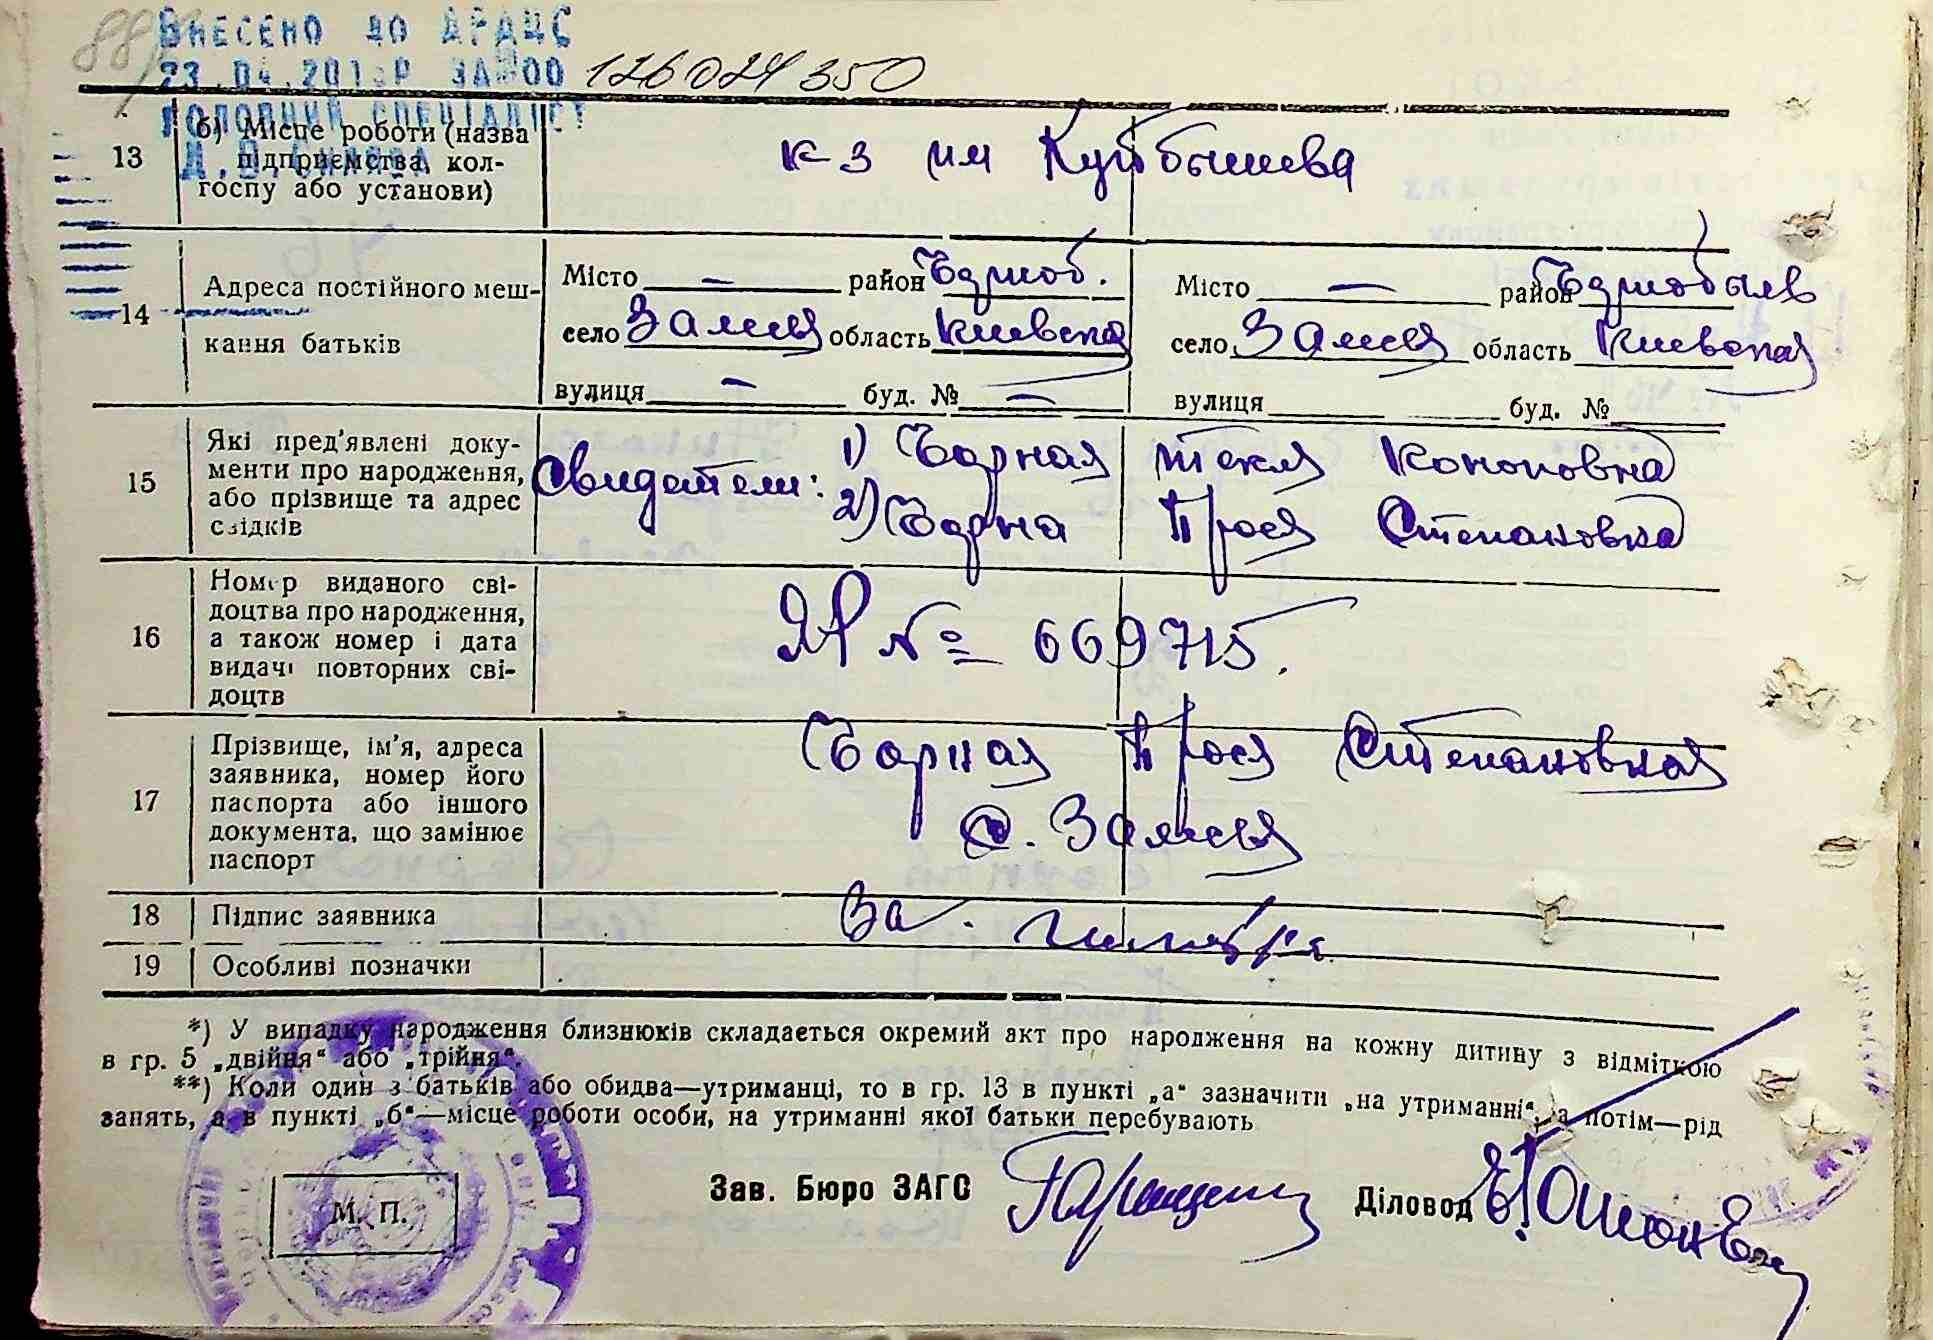 88
ВНЕСЕНО ДО ДРАЦС
23.04.201 Р ЗА 00 126024350
ГОЛОВНИЙ СПЕЦІАЛІСТ
13
б) Місце роботи (назва
підприємства, кол-
госпу або установи)
к-з им Куйбышева
14
Адреса постійного меш-
кання батьків
Місто — район Чорноб.
село Замся область Киевская
вулиця — буд. № —
Місто — район Чорнобыев
село Замся область Киевская
вулиця буд. №
15
Які пред'явлені доку-
менти про народження,
або прізвище та адрес
свідків
Свидетели: 1) Чорная Текля Кононовна
2) Чорна Прося Степановна
16
Номер виданого сві-
доцтва про народження,
а також номер і дата
видачі повторних сві-
доцтв
ЯР № 669715.
17
Прізвище, ім'я, адреса
заявника, номер його
паспорта або іншого
документа, що замінює
паспорт
Чорная Прося Степановная
с. Замся
18 Підпис заявника
За
19 Особливі позначки
*) У випадку народження близнюків складається окремий акт про народження на кожну дитину з відміткою
в гр. 5 „двійня“ або „трійня“.
**) Коли один з батьків або обидва—утриманці, то в гр. 13 в пункті „а“ зазначити „на утриманні“, а потім—рід
занять, а в пункті „б“—місце роботи особи, на утриманні якої батьки перебувають
М. П.
Зав. Бюро ЗАГС
Діловод